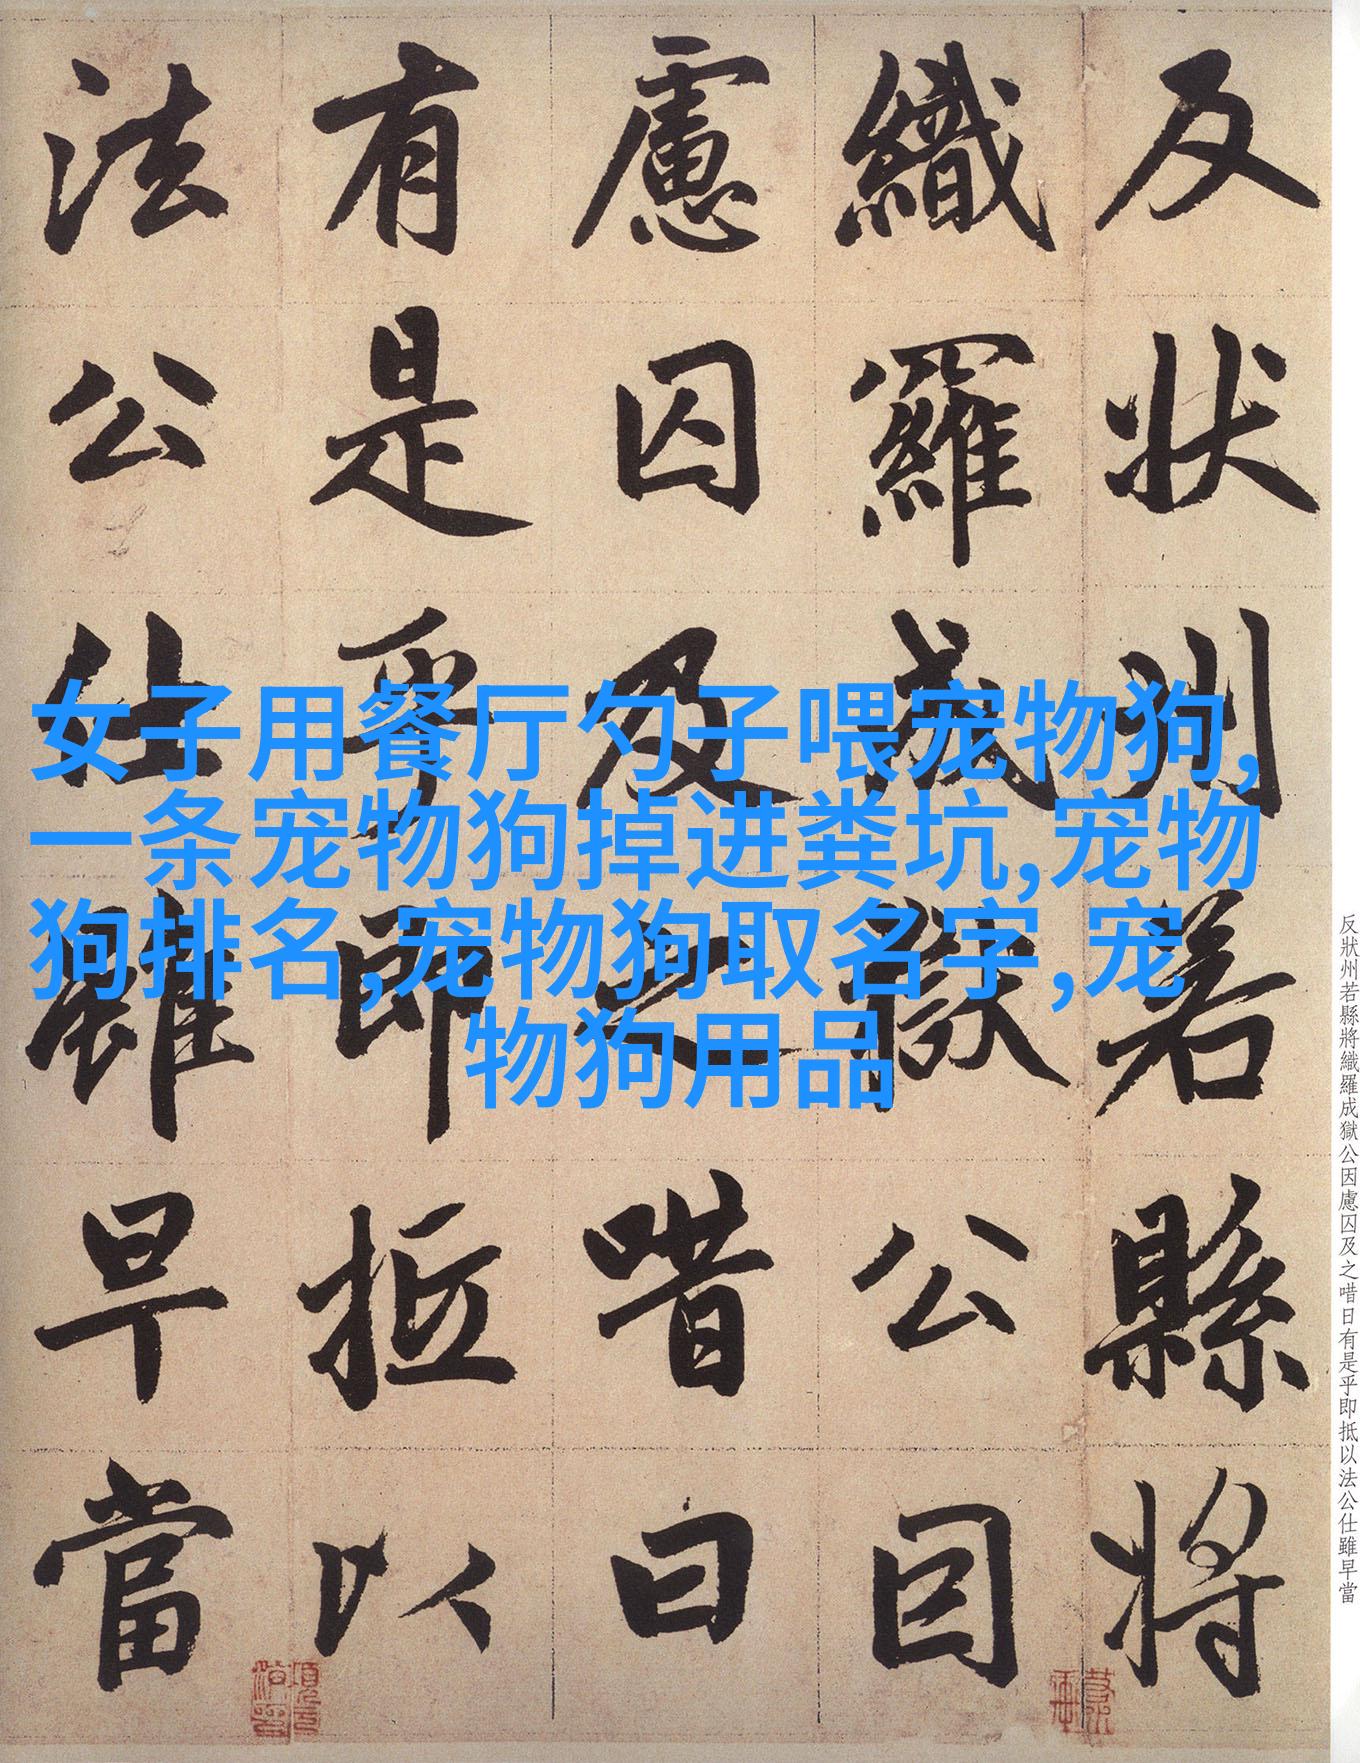 反狀州若縣將
織羅成獄公因
慮囚及之唶曰
有是乎即抵以
法公仕雖早當
女子用餐厅勺子喂宠物狗,
一条宠物狗掉进粪坑,宠物
狗排名,宠物狗取名字,宠
物狗用品
反狀州若縣將織羅成獄公因慮囚及之唶日有是乎即抵以法公仕雖早當